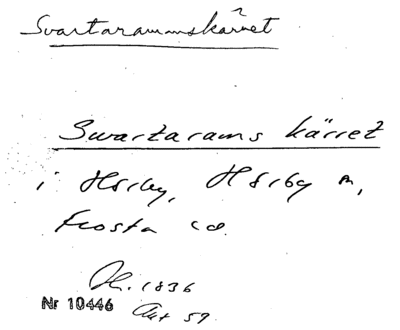 Svartarammskärret
Swartarams kärret
i Hörby, Hörby m,
Frosta hd.
1836
Nr 10446 Akt 59